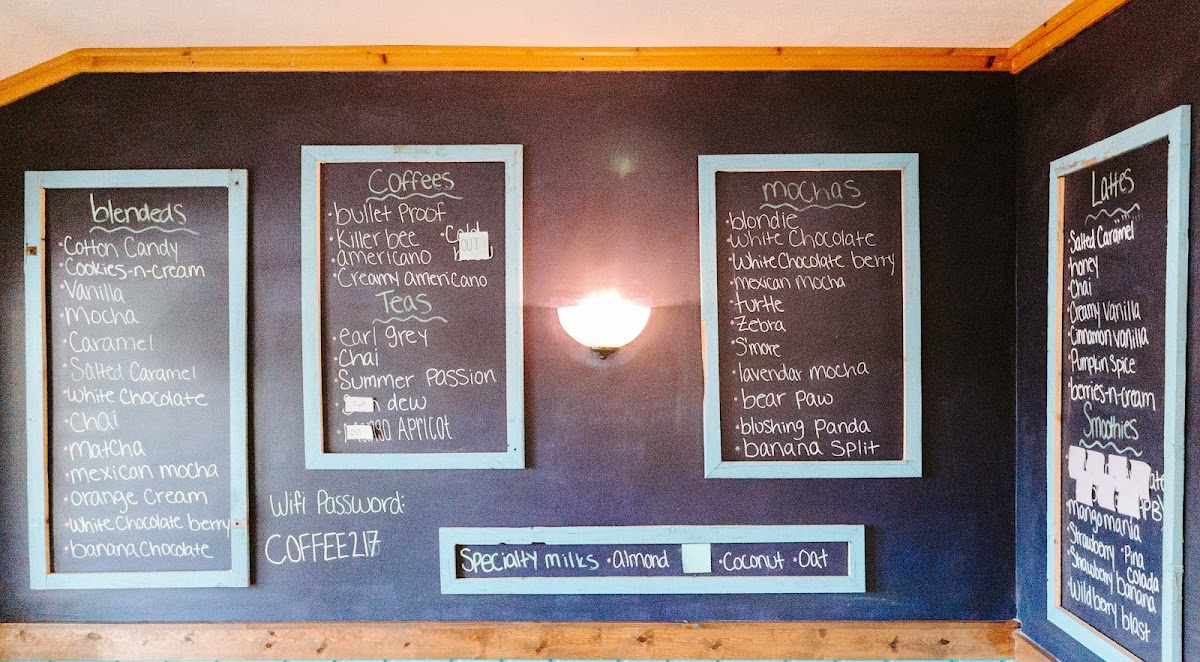 blendeds
Cotton Candy
Cookies-n-cream
Vanilla
Mocha
Caramel
Salted Caramel
White Chocolate
Chai
Matcha
mexican mocha
orange cream
White Chocolate berry
banana Chocolate
Coffees
bullet Proof
Killer bee
americano
Cold
OUT
Creamy americano
Teas
earl grey
Chai
Summer Passion
dew
APRICOT
Wifi Password:
COFFEE217
mochas
blondie
White Chocolate
White Chocolate berry
mexican mocha
turtle
Zebra
S'more
lavendar mocha
bear paw
blushing panda
banana Split
Specialty milks · Almond · Coconut · Oat
Lattes
Salted Caramel
honey
Chai
Creamy Vanilla
Cinnamon vanilla
Pumpkin Spice
berries-n-cream
Smoothies
PBJ
mango mania
Strawberry · Pina
Colada
Strawberry banana
Wildberry blast